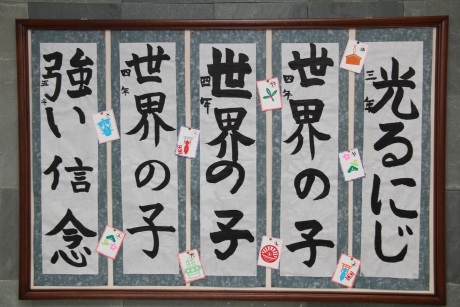 光るにじ
三年
世界の子
四年
世界の子
四年
世界の子
四年
強い信念
五年